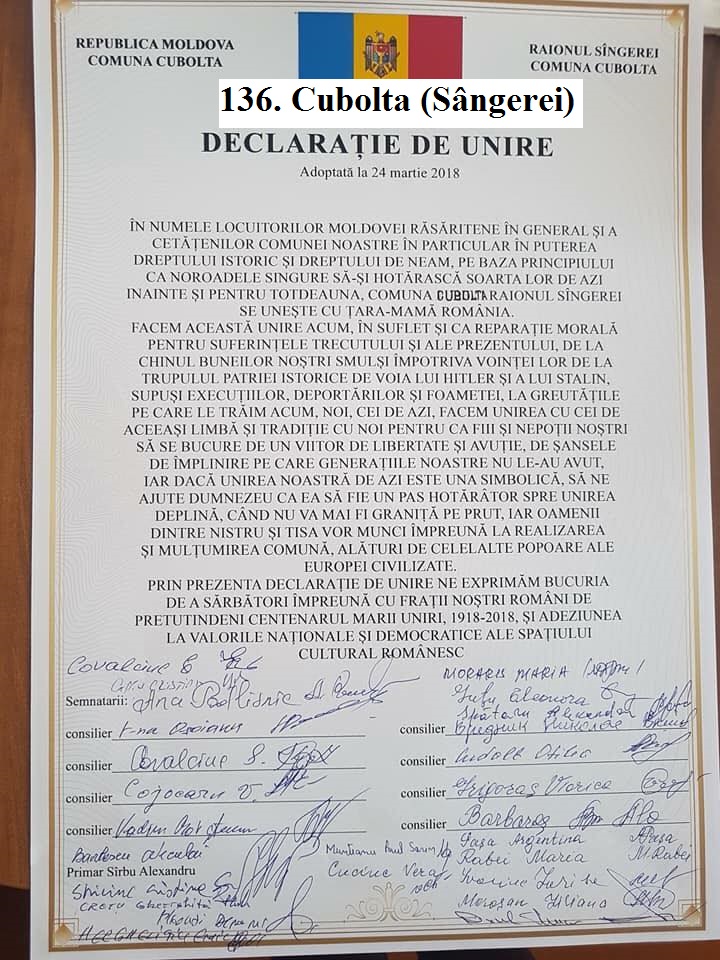 REPUBLICA MOLDOVA
COMUNA CUBOLTA
RAIONUL SÎNGEREI
COMUNA CUBOLTA
136. Cubolta (Sângerei)
DECLARAȚIE DE UNIRE
Adoptată la 24 martie 2018
ÎN NUMELE LOCUITORILOR MOLDOVEI RĂSĂRITENE ÎN GENERAL ȘI A
CETĂȚENILOR COMUNEI NOASTRE ÎN PARTICULAR ÎN PUTEREA
DREPTULUI ISTORIC ȘI DREPTULUI DE NEAM, PE BAZA PRINCIPIULUI
CA NOROADELE SINGURE SĂ-ȘI HOTĂRASCĂ SOARTA LOR DE AZI
INAINTE ȘI PENTRU TOTDEAUNA, COMUNA CUBOLTA RAIONUL SÎNGEREI
SE UNEȘTE CU ȚARA-MAMĂ ROMÂNIA.
FACEM ACEASTĂ UNIRE ACUM, ÎN SUFLET ȘI CA REPARAȚIE MORALĂ
PENTRU SUFERINȚELE TRECUTULUI ȘI ALE PREZENTULUI, DE LA
CHINUL BUNEILOR NOȘTRI SMULȘI ÎMPOTRIVA VOINȚEI LOR DE LA
TRUPULUL PATRIEI ISTORICE DE VOIA LUI HITLER ȘI A LUI STALIN,
SUPUȘI EXECUȚIILOR, DEPORTĂRILOR ȘI FOAMETEI, LA GREUTĂȚILE
PE CARE LE TRĂIM ACUM, NOI, CEI DE AZI, FACEM UNIREA CU CEI DE
ACEEAȘI LIMBĂ ȘI TRADIȚIE CU NOI PENTRU CA FIII ȘI NEPOȚII NOȘTRI
SĂ SE BUCURE DE UN VIITOR DE LIBERTATE ȘI AVUȚIE, DE ȘANSELE
DE ÎMPLINIRE PE CARE GENERAȚIILE NOASTRE NU LE-AU AVUT,
IAR DACĂ UNIREA NOASTRĂ DE AZI ESTE UNA SIMBOLICĂ, SĂ NE
AJUTE DUMNEZEU CA EA SĂ FIE UN PAS HOTĂRÂTOR SPRE UNIREA
DEPLINĂ, CÂND NU VA MAI FI GRANIȚĂ PE PRUT, IAR OAMENII
DINTRE NISTRU ȘI TISA VOR MUNCI ÎMPREUNĂ LA REALIZAREA
ȘI MULȚUMIREA COMUNĂ, ALĂTURI DE CELELALTE POPOARE ALE
EUROPEI CIVILIZATE.
PRIN PREZENTA DECLARAȚIE DE UNIRE NE EXPRIMĂM BUCURIA
DE A SĂRBĂTORI ÎMPREUNĂ CU FRAȚII NOȘTRI ROMÂNI DE
PRETUTINDENI CENTENARUL MARII UNIRI, 1918-2018, ȘI ADEZIUNEA
LA VALORILE NAȚIONALE ȘI DEMOCRATICE ALE SPAȚIULUI
CULTURAL ROMÂNESC
Covalciuc E
MORARIS MARIA
Semnatarii: Ana
Eleonora
consilier
consilier
consilier Covalciuc S.
consilier Otilia
consilier Cojocaru V.
consilier Grigoraș Viorica
consilier
consilier Barbaroș
Pașa Argentina APașa
Primar Sîrbu Alexandru
Munteanu Paul
Rabei Maria M.Rabei
Vera
Moroșan Iliana